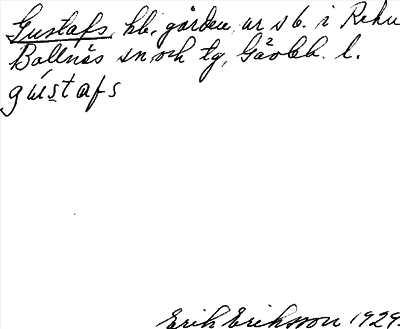 Gustafs, hb., gården, ur s b. i Rehn
Bollnäs sn och tg, Gävleb. l.
gústafs
Erik Eriksson 1929.